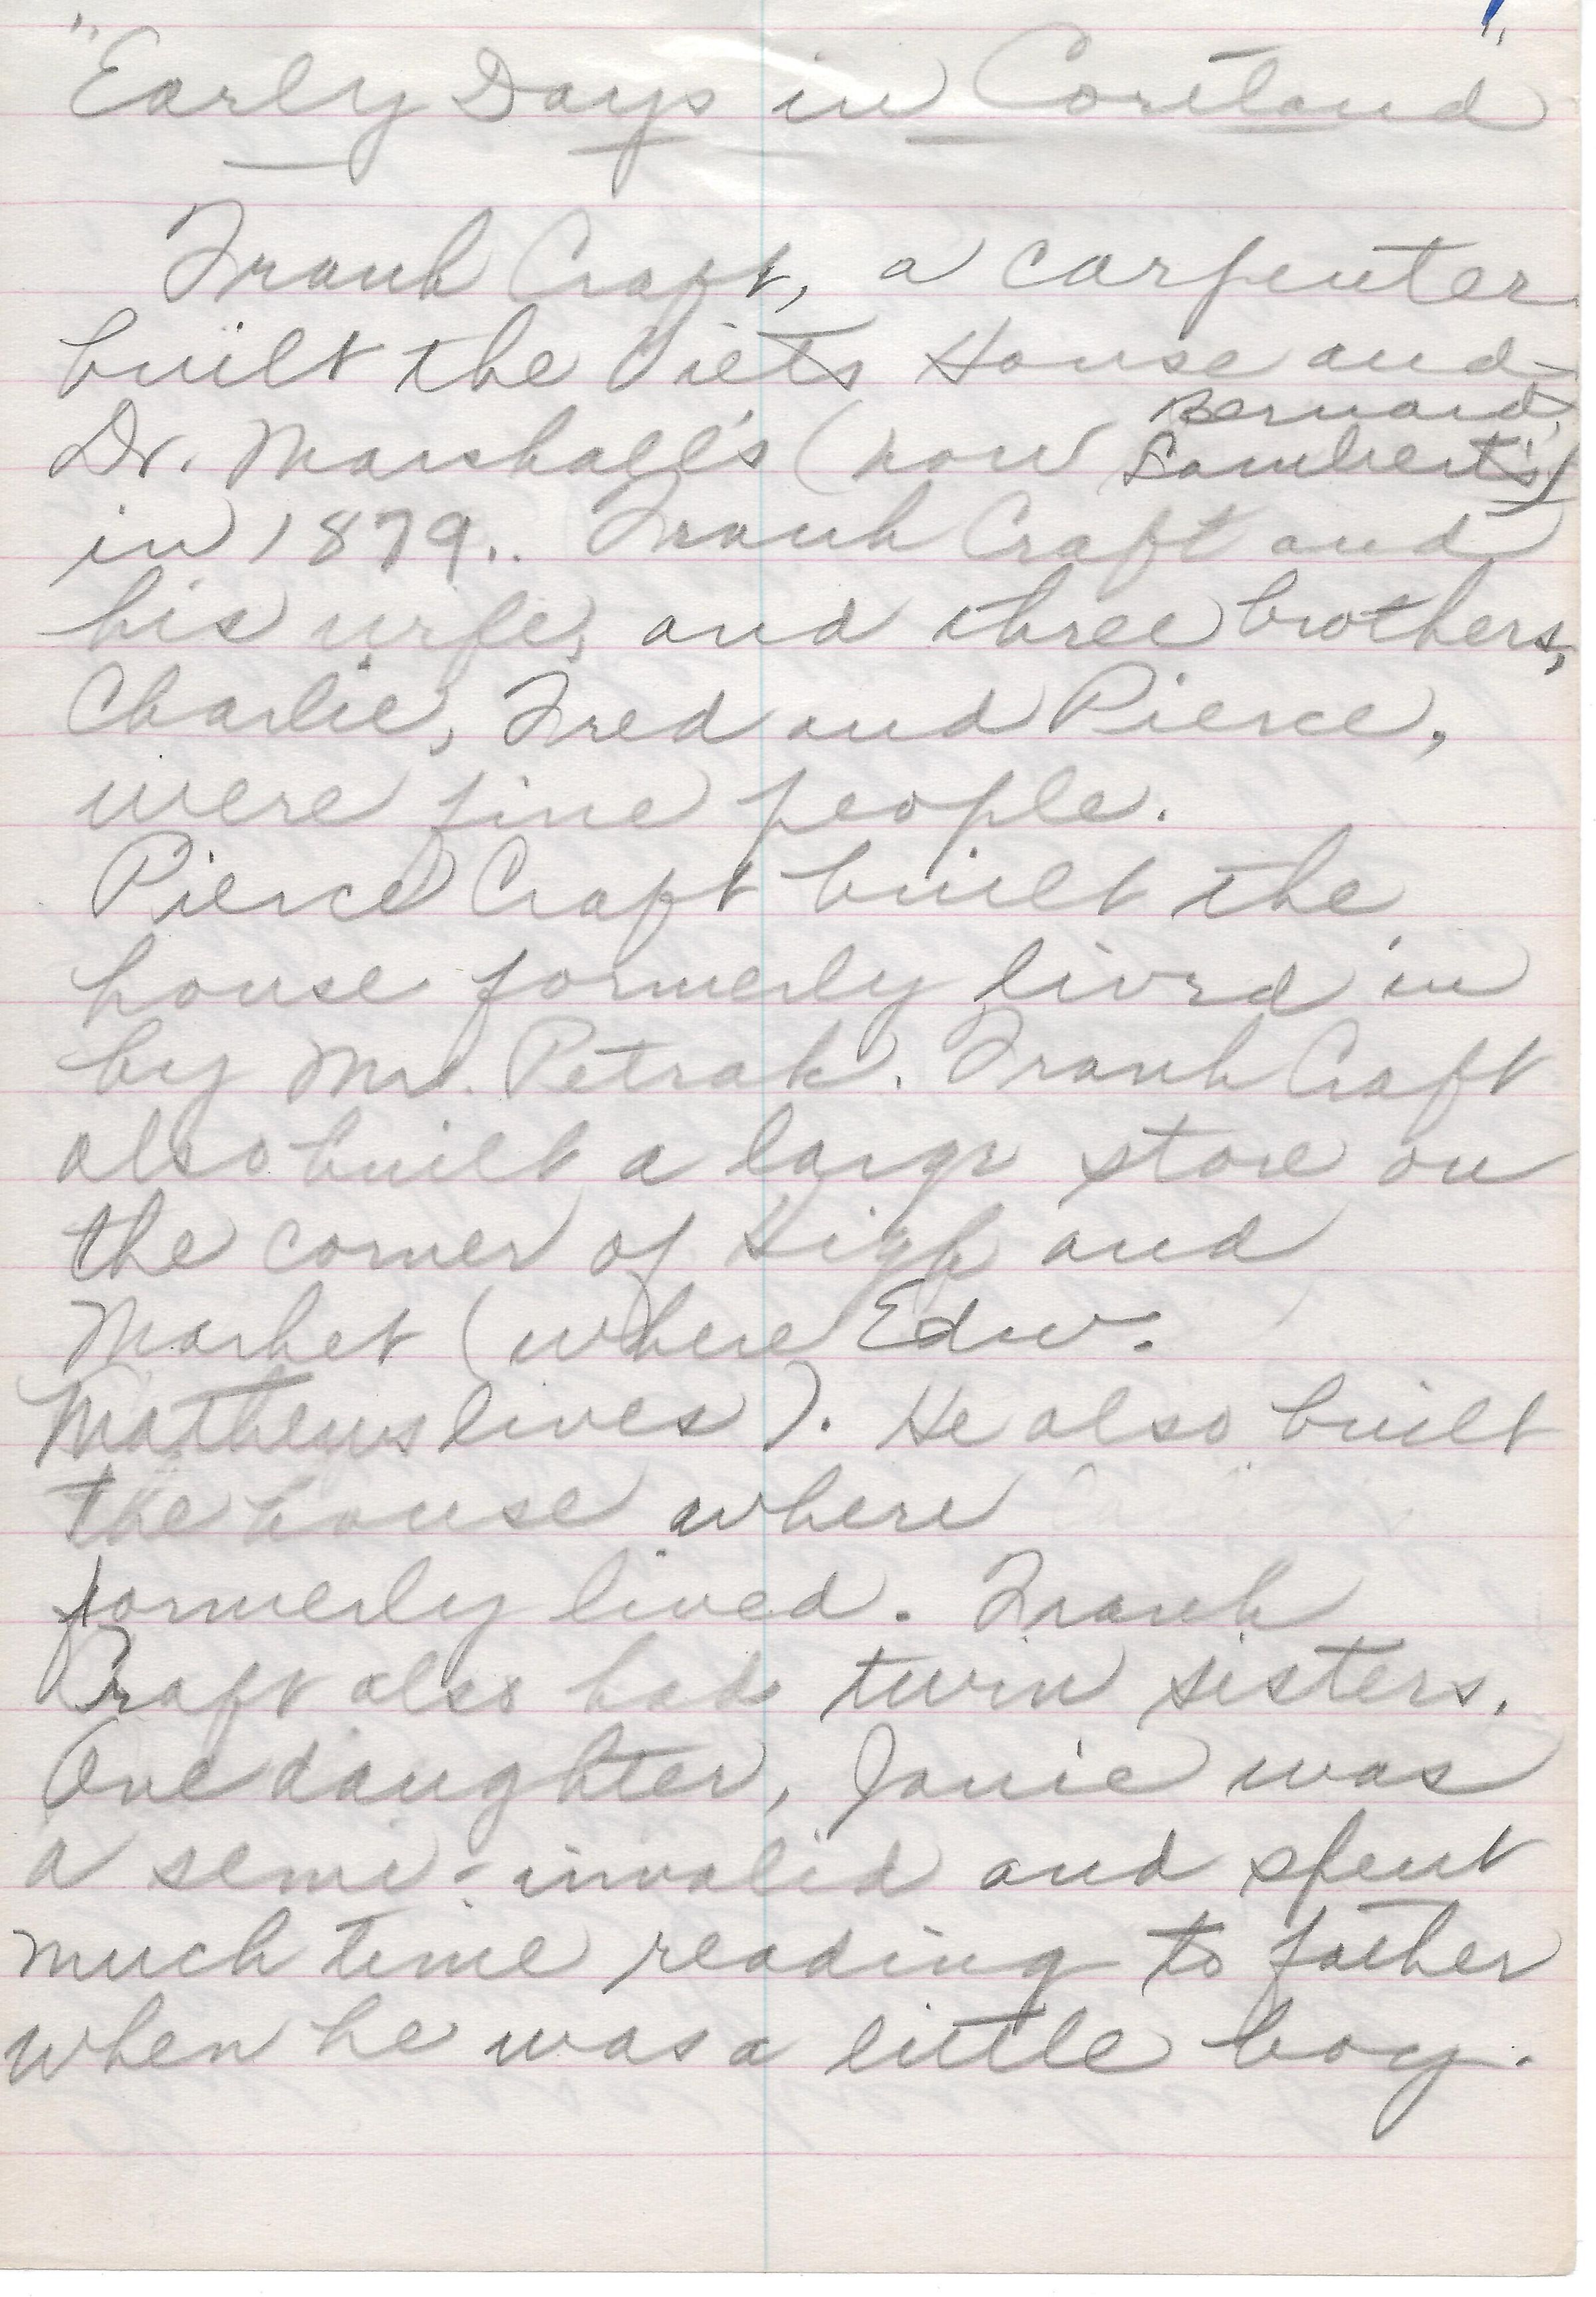 "Early Days in Cortland"
Frank Craft, a carpenter
built the Viets House and
Bernard
Dr. Marshall's (now Lambert's)
in 1879.. Frank Craft and
his wife, and three brothers,
Charlie, Fred and Pierce,
were fine people.
Pierce Craft built the
house formerly lived in
by Mr. Petrak. Frank Craft
also built a large store on
the corner of High and
Market (where Edw.
Mathews lives). He also built
the house where
formerly lived. Frank
Craft also had twin sisters.
One daughter, Janie was
a semi-invalid and spent
much time reading to father
when he was a little boy.